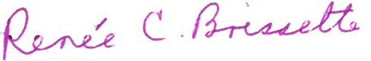 Renée C. Brissette